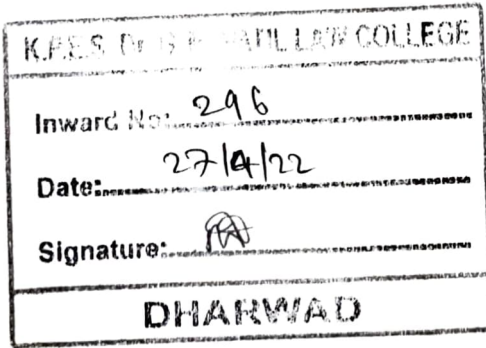 K.P.E.S. Dr. G. M. PATIL LAW COLLEGE
Inward No: 296
Date: 27/4/22
Signature:
DHARWAD